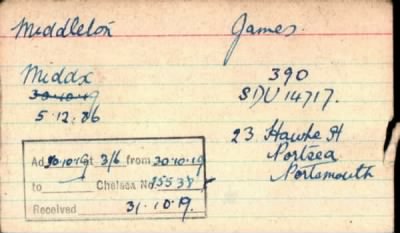 Middleton James.
Middx 390
30.10.19 SDU 14717.
5.12.86
23 Hawke St
Portsea
Portsmouth
Ad 30.10.19 at 3/6 from 30.10.19
to Chelsea No 15538
Received 31.10.19.